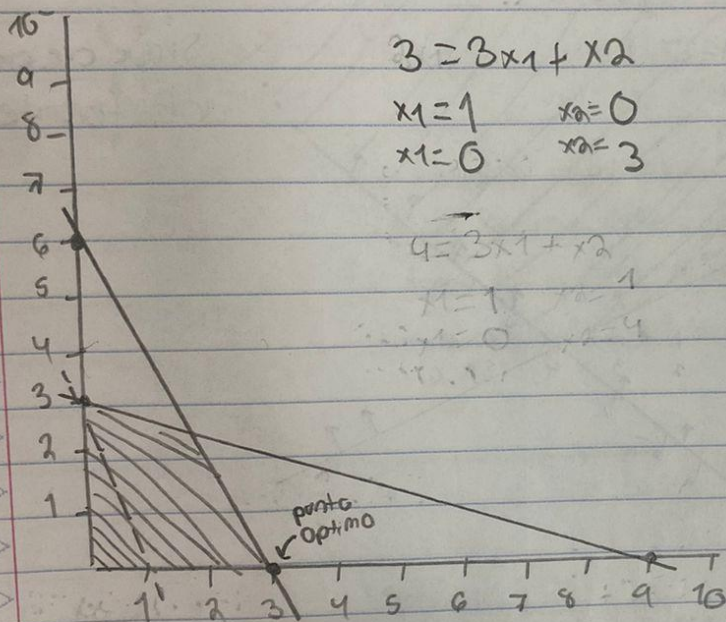 10
9
8
7
6
5
4
3
2
1
3 = 3x1 + x2
x1=1 x2=0
x1=0 x2=3
4=3x1+x2
x1=1 x2=1
x1=0 x2=4
punto
Optimo
1 2 3 4 5 6 7 8 9 10